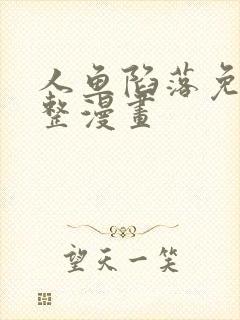 人鱼陷落免
整漫畫
望天一笑